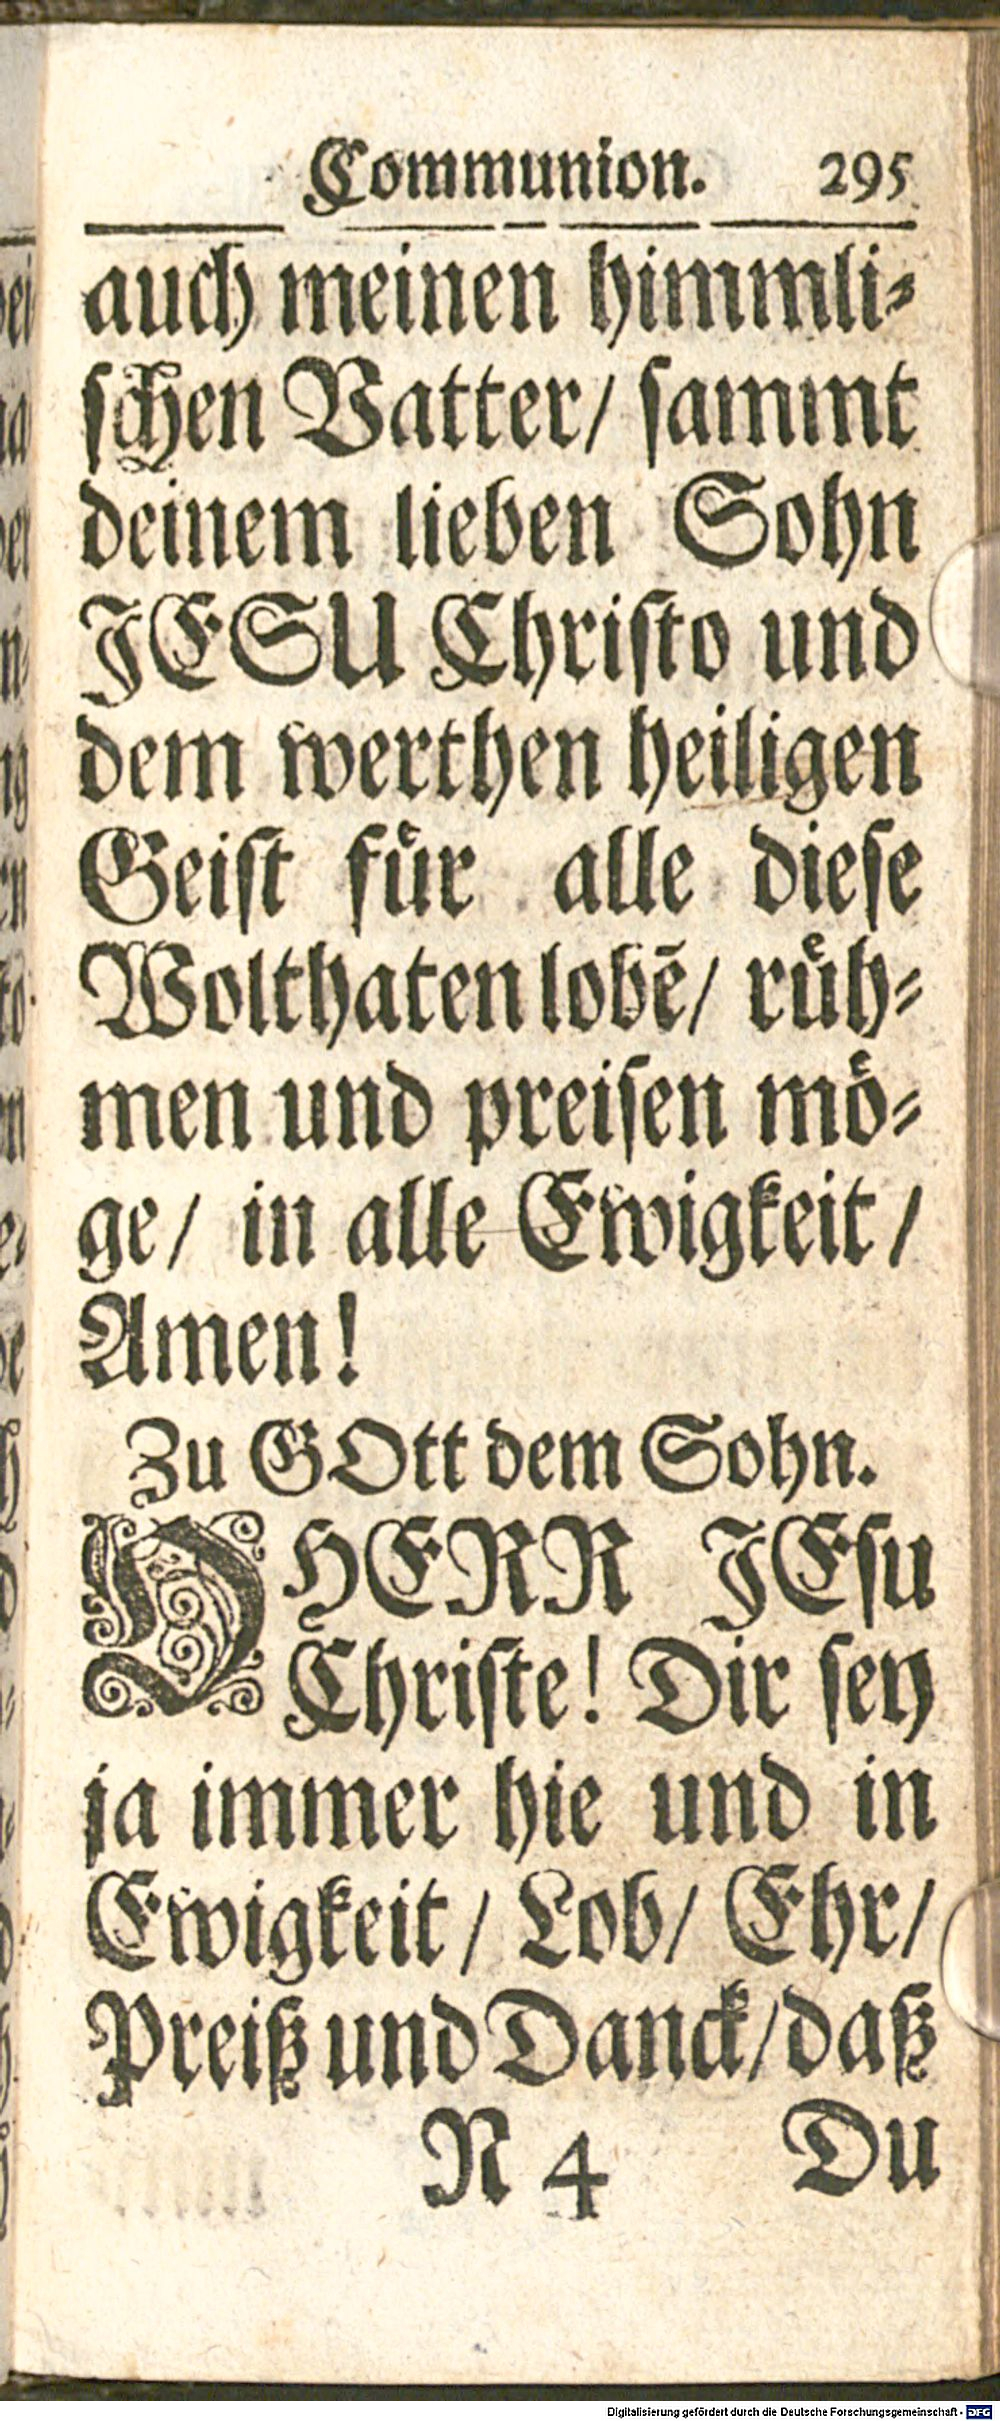 Communion. 295
auch meinen himmli⸗
ſchen Vatter/ ſammt
deinem lieben Sohn
JESU Chriſto und
dem werthen heiligen
Geiſt fuͤr alle dieſe
Wolthaten lobē/ ruͤh⸗
men und preiſen moͤ⸗
ge/ in alle Ewigkeit/
Amen!
Zu GOtt dem Sohn.
O HERR JEſu
Chriſte! Dir ſey
ja immer hie und in
Ewigkeit/ Lob/ Ehr/
Preiß und Danck/ daß
N 4 Du
Digitalisierung gefördert durch die Deutsche Forschungsgemeinschaft - DFG